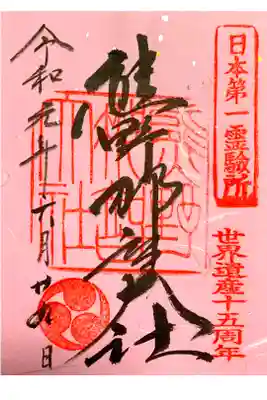 日本第一靈験所
世界遺産十五周年
熊野那智大社
令和元年六月廿九日